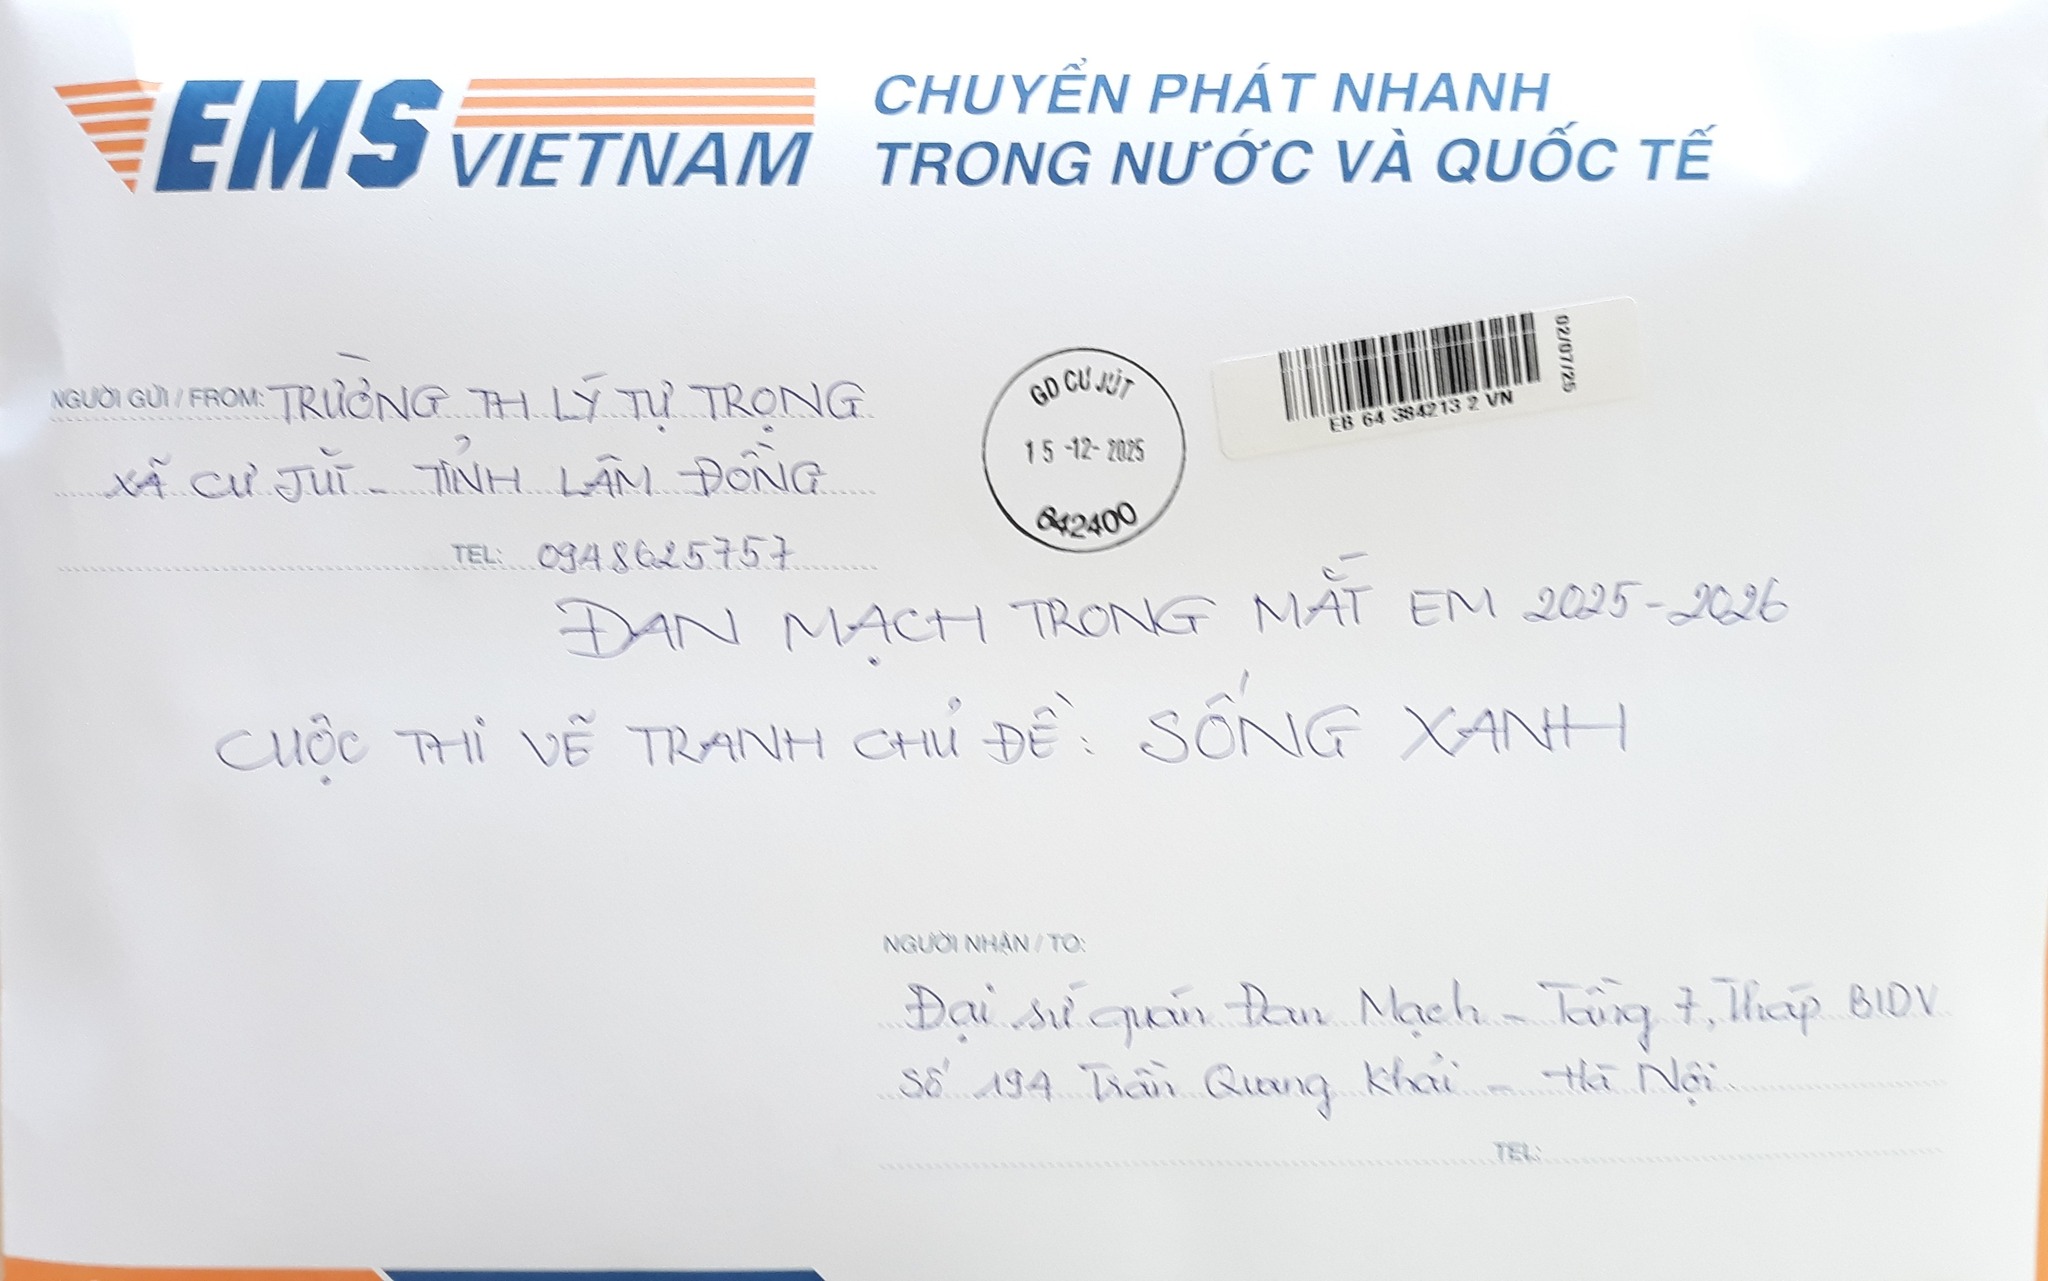 EMS VIETNAM
CHUYỂN PHÁT NHANH
TRONG NƯỚC VÀ QUỐC TẾ
NGƯỜI GỬI / FROM: TRƯỜNG TH LÝ TỰ TRỌNG
XÃ CƯ JÚT - TỈNH LÂM ĐỒNG
TEL: 0948625757
GD CƯ JÚT
15-12-2025
642400
EB 64 384213 2 VN
02/07/25
ĐAN MẠCH TRONG MẮT EM 2025-2026
CUỘC THI VẼ TRANH CHỦ ĐỀ: SỐNG XANH
NGƯỜI NHẬN / TO:
Đại sứ quán Đan Mạch - Tầng 7, Tháp BIDV
Số 194 Trần Quang Khải - Hà Nội
TEL: